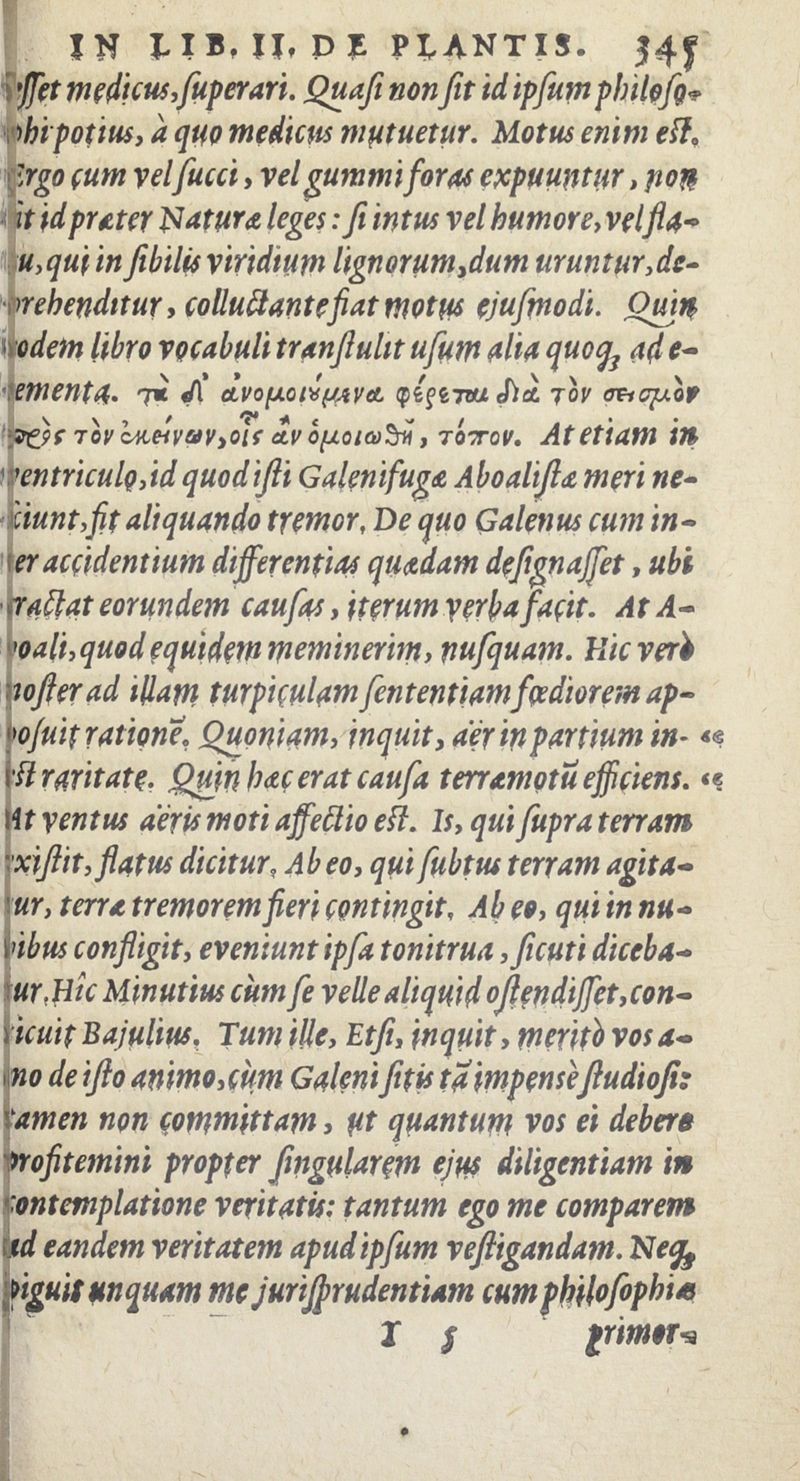 IN LIB. II. DE PLANTIS. 345
ſſet medicus, ſuperari. Quaſi non ſit id ipſum philoſo-
phi potius, à quo medicus mutuetur. Motus enim eſt.
Ergo cum vel ſucci, vel gummi foras expuuntur, non
ſit id præter Naturæ leges: ſi intus vel humore, vel fla-
tu, qui in ſibilis viridium lignorum, dum uruntur, de-
prehenditur, colluctante fiat motus ejuſmodi. Quin
eodem libro vocabuli tranſtulit uſum alia quoq; ad e-
lementa. τὰ δ' ἀνομοιούμενα φέρεται διὰ τὸν σεισμὸν
πρὸς τὸν ἐκείνων, οἷς ἂν ὁμοιωθῇ, τόπον. At etiam in
ventriculo, id quod iſti Galenifugæ Aboaliſtæ meri ne-
ſciunt, fit aliquando tremor, De quo Galenus cum in-
ter accidentium differentias quædam deſignaſſet, ubi
tractat eorundem cauſas, iterum verba facit. At A-
boali, quod equidem meminerim, nuſquam. Hic verò
noſter ad illam turpiculam ſententiam fœdiorem ap-
poſuit rationē. Quoniam, inquit, aër in partium in- “
eſt raritate. Quin hæc erat cauſa terræmotū efficiens. “
At ventus aëris moti affectio eſt. Is, qui ſupra terram
exiſtit, flatus dicitur. Ab eo, qui ſubtus terram agita-
tur, terræ tremorem fieri contingit. Ab eo, qui in nu-
bibus confligit, eveniunt ipſa tonitrua, ſicuti diceba-
tur. Hîc Minutius cùm ſe velle aliquid oſtendiſſet, con-
ticuit Bajulius. Tum ille, Etſi, inquit, meritò vos a-
mo de iſto animo, cùm Galeni ſitis tā impensè ſtudioſi:
tamen non committam, ut quantum vos ei debere
profitemini propter ſingularem ejus diligentiam in
contemplatione veritatis: tantum ego me comparem
ad eandem veritatem apud ipſum veſtigandam. Neq;
piguit unquam me juriſprudentiam cum philoſophiæ
Y 5 primor-